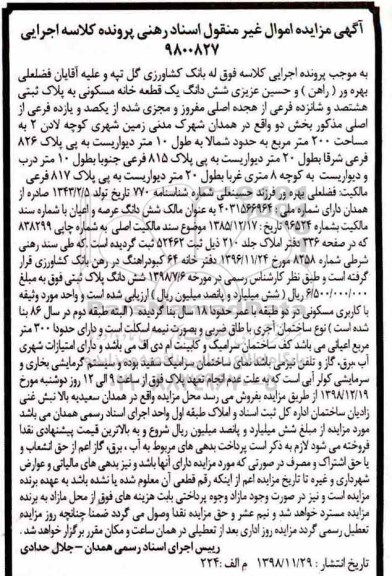 آگهی مزایده اموال غیر منقول اسناد رهنی پرونده کلاسه اجرایی
۹۸۰۰۸۲۷
به موجب پرونده اجرایی کلاسه فوق له بانک کشاورزی گل تپه و علیه آقایان فضلعلی
بهره ور ( راهن ) و حسین عزیزی شش دانگ یک قطعه خانه مسکونی به پلاک ثبتی
هشتصد و شانزده فرعی از هجده اصلی مفروز و مجزی شده از یکصد و یازده فرعی از
اصلی مذکور بخش دو واقع در همدان شهرک مدنی زمین شهری کوچه لادن ۲ به
مساحت ۲۰۰ متر مربع به حدود شمالا به طول ۱۰ متر دیواریست به پی پلاک ۸۲۶
فرعی شرقا بطول ۲۰ متر دیواریست به پی پلاک ۸۱۵ فرعی جنوبا بطول ۱۰ متر درب
و دیواریست به کوچه ۸ متری غربا بطول ۲۰ متر دیواریست به پی پلاک ۸۱۷ فرعی
مالکیت: فضلعلی بهره ور فرزند حسینعلی شماره شناسنامه ۷۷۰ تاریخ تولد ۱۳۴۳/۲/۵ صادره از
همدان دارای شماره ملی ۴۰۳۱۵۶۶۹۶۴ به عنوان مالک شش دانگ عرصه و اعیان با شماره سند
مالکیت بشماره ۹۶۵۲۴ تاریخ ۱۳۸۵/۱۲/۱۷ موضوع سند مالکیت اصلی به شماره چاپی ۸۳۸۲۹۹
که در صفحه ۳۳۶ دفتر املاک جلد ۲۱۰ ذیل ثبت ۵۲۴۶۲ ثبت گردیده است .که طی سند رهنی
شرطی شماره ۸۲۵۸ مورخ ۱۳۹۶/۱۱/۲۴ دفتر خانه ۶۴ کبودراهنگ در رهن بانک کشاورزی قرار
گرفته است و طبق نظر کارشناس رسمی در مورخه ۱۳۹۸/۷/۶ شش دانگ پلاک ثبتی فوق به مبلغ
۶/۵۰۰/۰۰۰/۰۰۰ ریال ( شش میلیارد و پانصد میلیون ریال ) ارزیابی شده است و واحد مورد وثیقه
با کاربری مسکونی در دو طبقه با عمر حدودا ۱۸ سال بنا گردیده ( البته طبقه دوم در سال ۸۶ بنا
شده است ) نوع ساختمان آجری با طاق ضربی و بصورت نیمه اسکلت است و دارای حدودا ۳۰۰ متر
مربع اعیانی می باشد کف ساختمان سرامیک و کابینت ام دی اف می باشد و دارای امتیازات شهری
آب برق، گاز و تلفن نیز می باشد نمای ساختمان سرامیک سفید بوده و سیستم گرمایشی بخاری و
سرمایشی کولر آبی است که به علت عدم انجام تعهد پلاک فوق از ساعت ۹ الی ۱۲ روز دوشنبه مورخ
۱۳۹۸/۱۲/۱۹ از طریق مزایده بفروش می رسد محل مزایده واقع در همدان سعیدیه بالا نبش غنی
زادیان ساختمان اداره کل ثبت اسناد و املاک طبقه اول واحد اجرای اسناد رسمی همدان می باشد
مورد مزایده از مبلغ شش میلیارد و پانصد میلیون ریال شروع و به بالاترین قیمت پیشنهادی نقدا
فروخته می شود لازم به ذکر است پرداخت بدهی های مربوط به آب ، برق، گاز اعم از حق انشعاب و
یا حق اشتراک و مصرف در صورتی که مورد مزایده دارای آنها باشد و نیز بدهی های مالیاتی و عوارض
شهرداری و غیره تا تاریخ مزایده اعم از اینکه رقم قطعی آن معلوم شده یا نشده باشد به عهده برنده
مزایده است و نیز در صورت وجود مازاد وجوه پرداختی بابت هزینه های فوق از محل مازاد به برنده
مزایده مسترد خواهد شد و نیم عشر و حق مزایده نقدا وصول می گردد ضمنا چنانچه روز مزایده
تعطیل رسمی گردد مزایده روز اداری بعد از تعطیلی در همان ساعت و مکان مقرر برگزار خواهد شد .
رییس اجرای اسناد رسمی همدان – جلال حدادی
تاریخ انتشار : ۱۳۹۸/۱۱/۲۹ م الف :۲۲۴